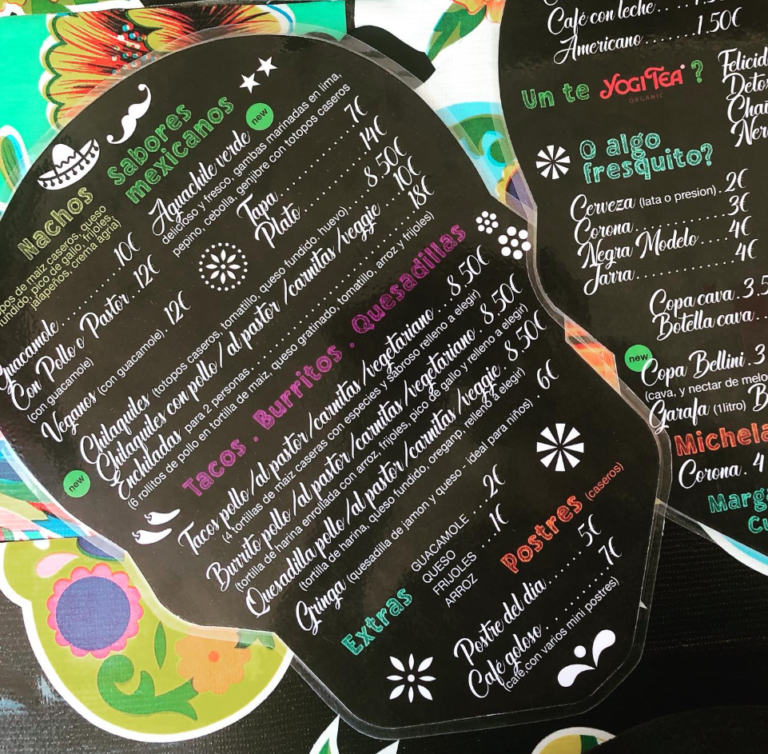 Nachos
pos de maiz caseros, queso
fundido, pico de gallo, frijoles,
jalapeños, crema agria)
Guacamole ........ 10€
Con Pollo o Pastor . 12€
(con guacamole)
Veganos (con guacamole) . 12€
Sabores
mexicanos
Aguachile verde new
delicioso y fresco, gambas marinadas en lima,
pepino, cebolla, genjibre con totopos caseros
Tapa ........ 7€
Plato ........ 14€
Chilaquiles (totopos caseros, tomatillo, queso fundido, huevo) . 8.50€
Chilaquiles con pollo / al pastor /carnitas /veggie . 10€
Enchiladas para 2 personas ........ 18€
(6 rollitos de pollo en tortilla de maíz, queso gratinado, tomatillo, arroz y frijoles)
new
Tacos . Burritos . Quesadillas
Tacos pollo /al pastor/carnitas /vegetariano . . . 8.50€
(4 tortillas de maiz caseras con especies y sabroso relleno a elegir)
Burrito pollo /al pastor/carnitas /vegetariano . 8.50€
(tortilla de harina enrollada con arroz, frijoles, pico de gallo y relleno a elegir)
Quesadilla pollo /al pastor/carnitas/veggie . 8.50€
(tortilla de harina, queso fundido, oreganp, relleno a elegir)
Gringa (quesadilla de jamon y queso - ideal para niños) . 6€
Extras
GUACAMOLE ..... 2€
QUESO
FRIJOLES ..... 1€
ARROZ
Postres (caseros)
Postre del dia ...... 5€
Café goloso ........ 7€
(café con varios mini postres)
Café con leche
Americano ...... 1.50€
Un te YOGI TEA ?
ORGANIC
O algo
fresquito?
Cerveza (lata o presion) . 2€
Corona ........ 3€
Negra Modelo .. 4€
Jarra ........ 4€
Copa cava . 3.5
Botella cava . .
new
Copa Bellini . 3
(cava, y nectar de melo
Garafa (1litro)
Michela
Corona . 4
Marg